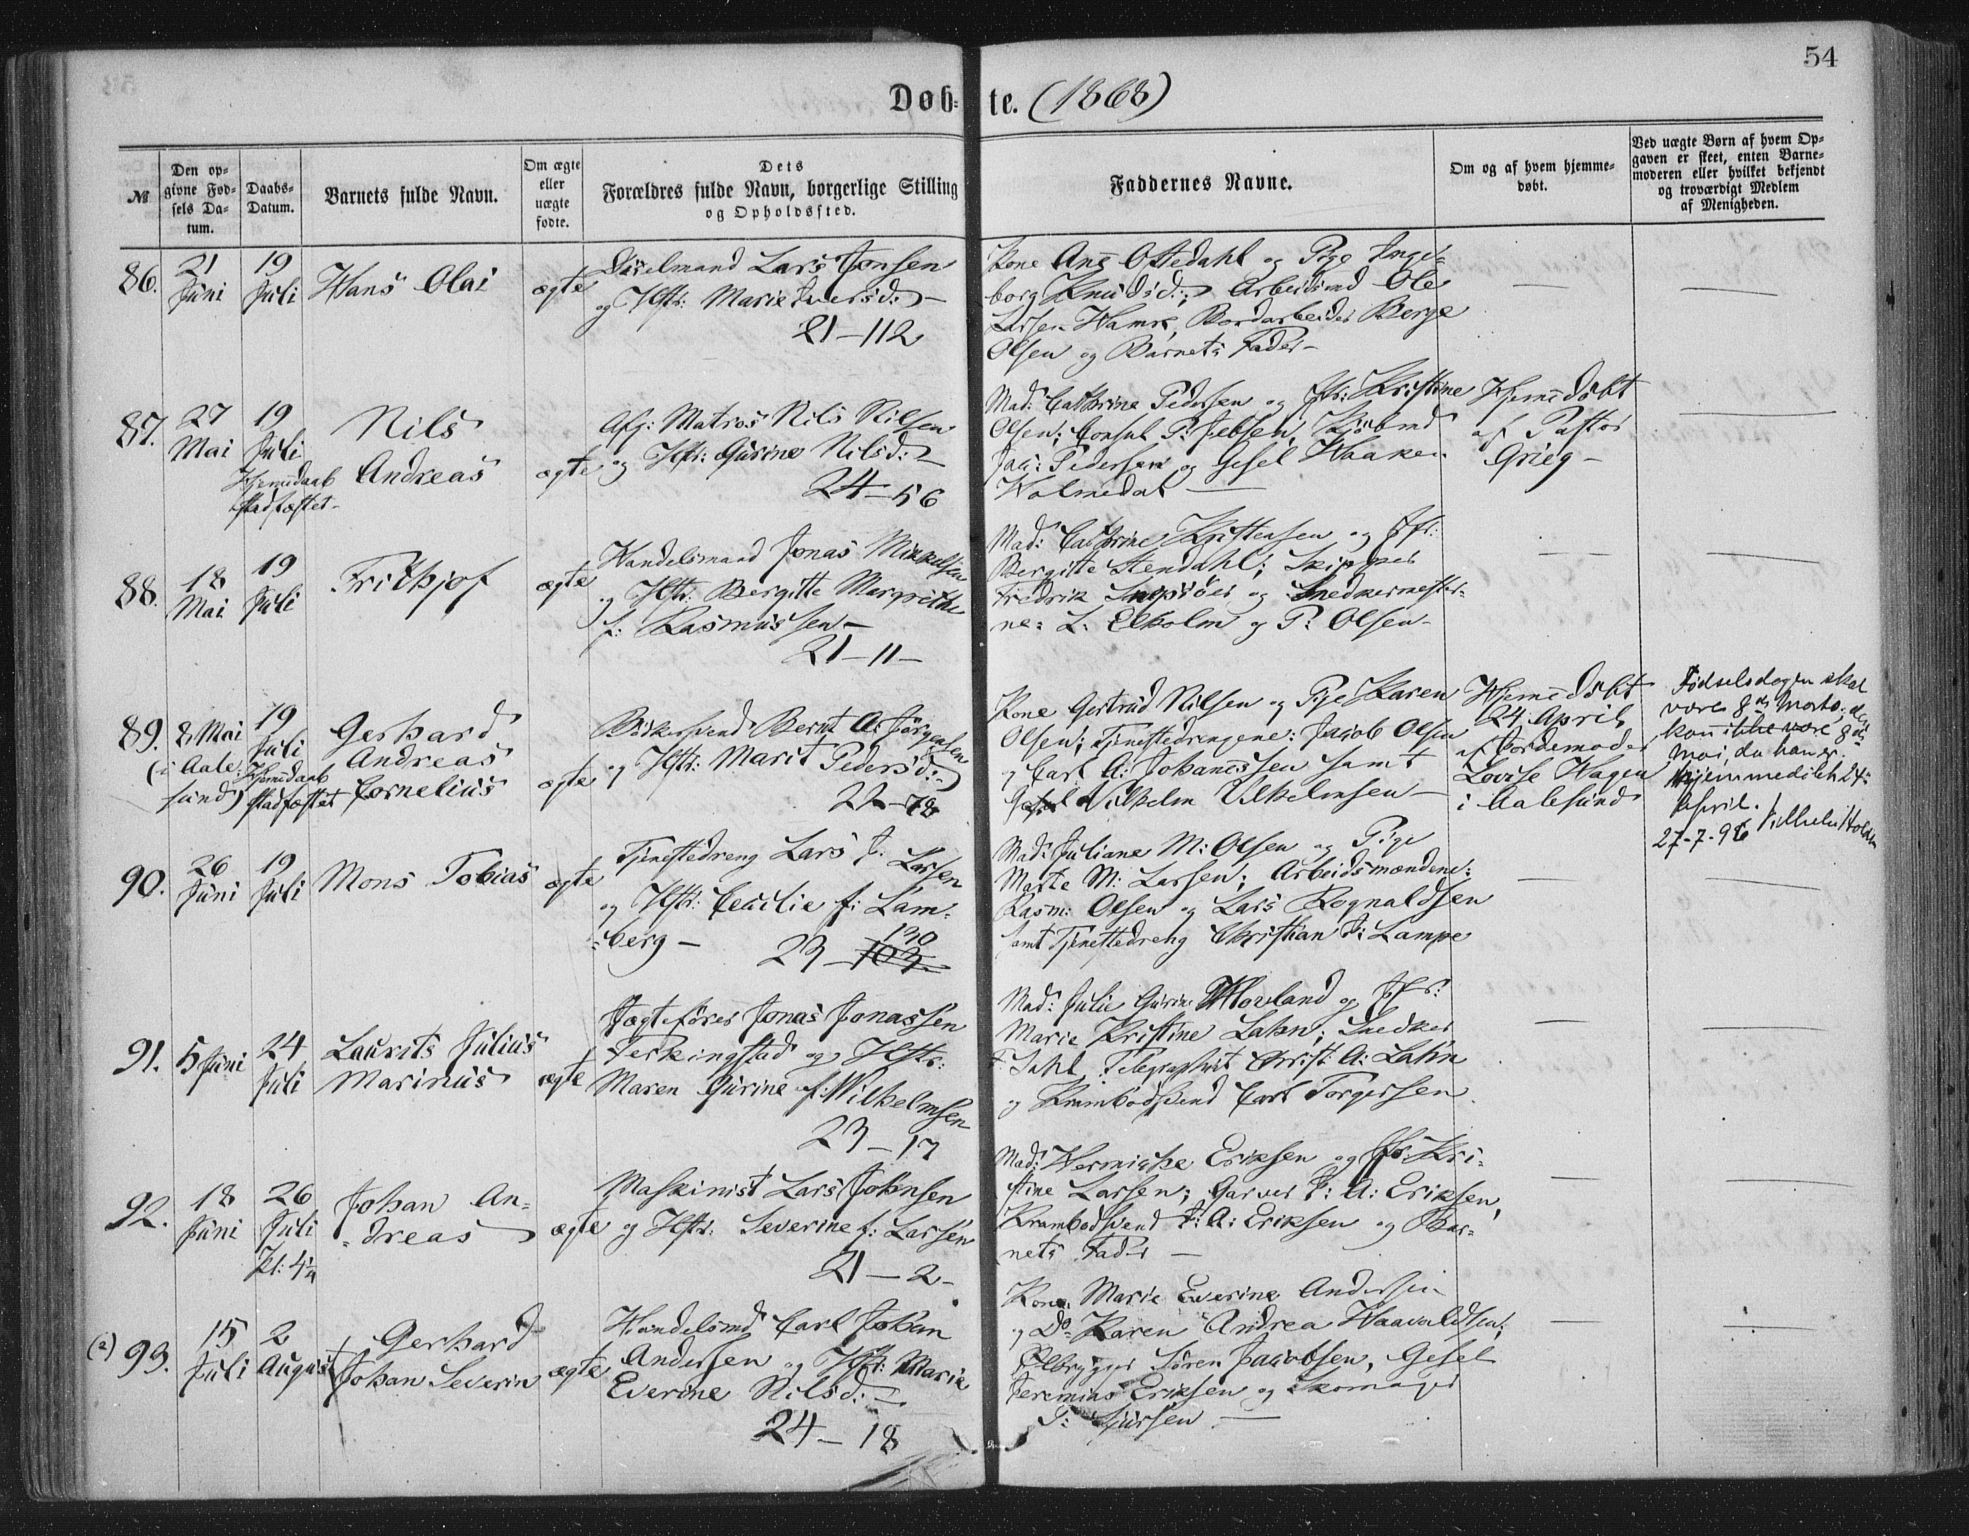 54
Døb- te. (1868)
№
Den op-
givne Fød-
sels Da-
tum.
Daabs-
Datum.
Barnets fulde Navn.
Om ægte
eller
uægte
fødte.
Dets
Forældres fulde Navn, borgerlige Stilling
og Opholdssted.
Faddernes Navne.
Om og af hvem hjemme-
døbt.
Ved uægte Børn af hvem Op-
gaven er skeet, enten Barne-
moderen eller hvilket bekjendt
og troværdigt Medlem
af Menigheden.
86.
21
Juni
19
Juli
Hans Olai
ægte
Lars Jonsen
og Hstr: Marie Iversd: —
21—112
Kone Ane Oftedahl og Pige Inge-
borg Knudsd:; Arbeidsmd Ole
Larsen Hamre, Bordarbeider Berge
Olsen og Barnets Fader —
—
—
87.
27
Mai
19
Juli
Hjemedaab
stadfæstet —
Nils
Andreas
ægte
Afg: Matros Nils Nilsen
og Hstr: Gurine Nilsd: —
24—56
Mad: Cathrine Pedersen og Jfr: Kristine
Olsen; Consul P: Jebsen, Kjøbmd
Jac: Pedersen og Gesel Haaken
Holmedal —
Hjemedøbt
af Pastor
Grieg —
—
88.
18
Mai
19
Juli
Frithjof
ægte
Handelsmand Jonas Mikkelsen
og Hstr: Bergitte Margrethe
f: Rasmussen —
21—11—
Mad: Cathrine Kristensen og Jfr:
Bergitte Stendahl; Skipper
Fredrik og Snedkermestre-
ne: L. Ekholm og P: Olsen —
—
—
89.
8 Mai
(i Aale-
sund)
19
Juli
Hjemedaab
stadfæstet
Gerhard
Andreas
Cornelius
ægte
Bernt A: Jørgensen
og Hstr: Marit Pedersd: —
22—78
Kone Gertrud Nilsen og Pige Karen
Olsen; Tjenestedrengene: Jacob Olsen
og Carl A: Johanessen samt
Gesel Vilhelm Vilhelmsen —
Hjemedøbt
24 April
af Jordemoder
Lovise Hagen
i Aalesund
Fødselsdagen skal
være 8de Marts; den
kan ikke være 8de
mai, da han er
hjemmedøbt 24de
April.
27-7-96 Vilhelm Hold
90.
26
Juni
19
Juli
Mons Tobias
ægte
Tjenestedreng Lars J. Larsen
og Hstr: Cecilie f: Lam-
berg —
130
23—103
Mad: Juliane M: Olsen og Pige
Marte M: Larsen; Arbeidsmændene:
Rasm: Olsen og Lars Rognaldsen
samt Tjenestedreng Christian J: Lampe
—
—
91.
5 Juni
24
Juli
Laurits Julius
Marinus
ægte
Jægtefører Jonas Jonassen
Ferkingstad og Hstr:
Maren Gurine f: Vilhelmsen
23—17
Mad: Julie Gurine Hovland og Jfr:
Marie Kristine Lahn; Snedker
Dahl, Telegraphist Christ: A: Lahn
og Krambodsvend Carl Torgersen.
—
—
92.
18
Juni
26
Juli
Kl: 4¼
Johan An-
dreas
ægte
Maskinist Lars Johnsen
og Hstr: Severine f: Larsen
21—2—
Mad: Eriksen og Jfr: Kri-
stine Larsen; Garver P: A: Eriksen,
Krambodsvend P: A: Eriksen og Bar-
nets Fader —
—
—
(2) 93.
15
Juli
2
August
Gerhard
Johan Severin
ægte
Handelsmd Carl Johan
Andersen og Hstr: Marie
Everine Nilsd: —
24—18
Kone Marie Everine Andersen
og Do Karen Andrea Haavaldsen;
Ølbrygger Søren Jacobsen, Gesel
Jeremias Eriksen og Skomager
—
—